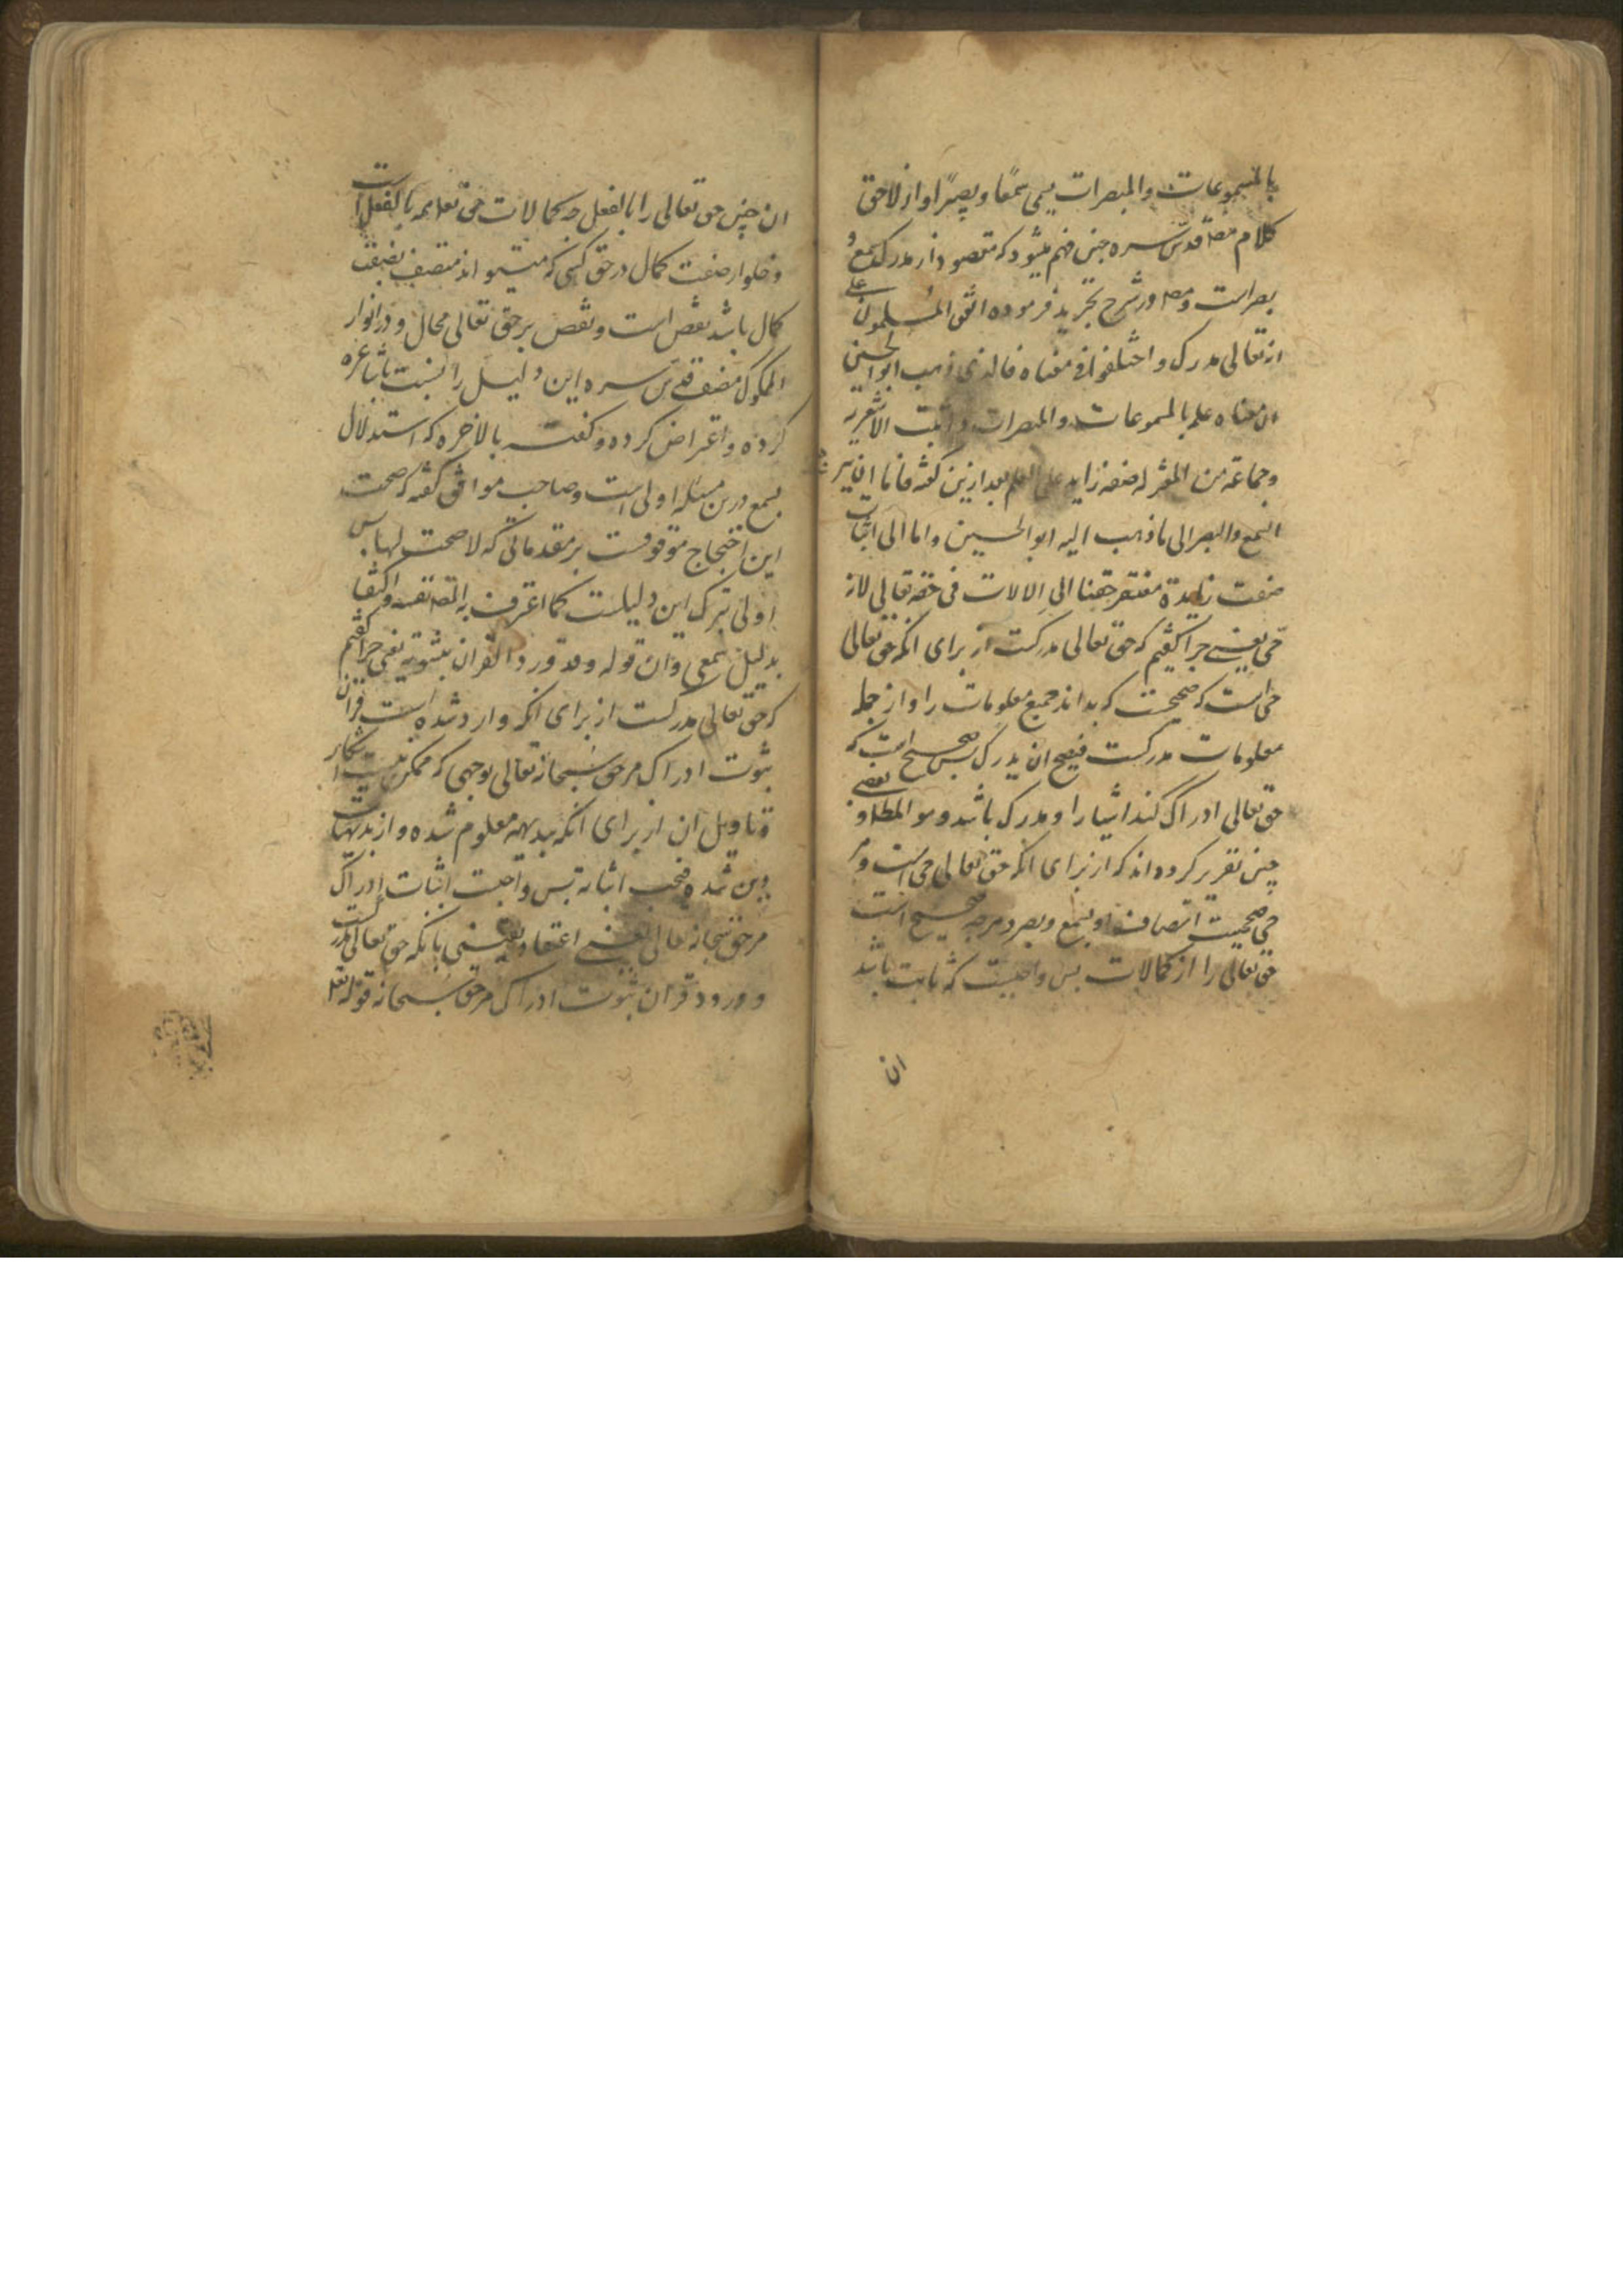 بالمسموعات والمبصرات یسمی سمعًا وبصرًا و از لاحق
کلام مصـ قدس سره چنین فهم میشود که مقصود از مدرک سمع و
بصر است و مصـ در شرح تجرید فرموده اتفق المسلمون علی
انه تعالی مدرک واختلفوا فی معناه فالذی ذهب ابو الحسین
ان معناه علمه بالمسموعات والمبصرات واثبت الاشعریه
وجماعة من المعتزله صفة زایده علی العلم بعد ازین گفته فاما ان یر
السمع والبصر الی ما ذهب الیه ابو الحسین واما الی اثبات
صفت زایدة مفتقر حقنا الی الالات فی حقه تعالی لانه
حی یعنی چرا گفتیم که حق تعالی مدرکست از برای انکه حق تعالی
حی است که صحیحست که بداند جمیع معلومات را و از جمله
معلومات مدرکست فیصح ان یدرک پس صحیح است که
حق تعالی ادراک کند اشیا را و مدرک باشد و هو المطلو و بعضی
چنین تقریر کرده اند که از برای انکه حق تعالی حی است و هر
حی صحیحست اتصاف او بسمع و بصر و هرچه صحیح است
حق تعالی را از کمالات پس واجبست که ثابت باشد
ان
ان چیز حق تعالی را بالفعل چه کمالات حق تعالی همه بالفعل است
و خلو از صفت کمال در حق کسی که میتواند متصف بصفت
کمال باشد نقص است و نقص بر حق تعالی محال و در انوار
الملکوت مصنف قدس سره این دلیل را نسبت باشاعره
کرده و اعتراض کرده و گفته بالاخره که استدلال
بسمع درین مسئله اولی است و صاحب مواقف گفته که صحت
این احتجاج موقوفست بر مقدماتی که لا صحت لها پس
اولی ترک این دلیلست کما اعترف به المصـ نفسه و اکتفا
بدلیل سمعی وان قوله وقد ورد القران بثبوته یعنی چرا گفتیم
که حق تعالی مدرکست از برای انکه وارد شده است قران
بثبوت ادراک مر حق سبحانه تعالی بوجهی که ممکن نیست انکار
و تاویل ان از برای انکه بدیهه معلوم شده و از بدیهیات
دین شده فیجب اثباته پس واجبست اثبات ادراک
مر حق سبحانه تعالی یعنی اعتقاد یقینی بانکه حق تعالی مدرکست
و ورود قران بثبوت ادراک مر حق سبحانه قوله تعـ